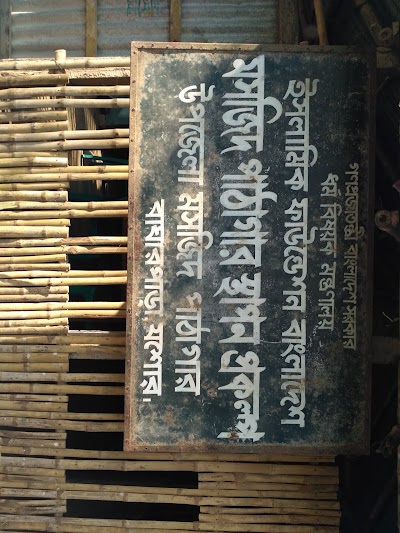 গণপ্রজাতন্ত্রী বাংলাদেশ সরকার
ধর্ম বিষয়ক মন্ত্রণালয়
ইসলামিক ফাউন্ডেশন বাংলাদেশ
মসজিদ পাঠাগার স্থাপন প্রকল্প
উপজেলা মসজিদ পাঠাগার
বাঘারপাড়া, যশোর.